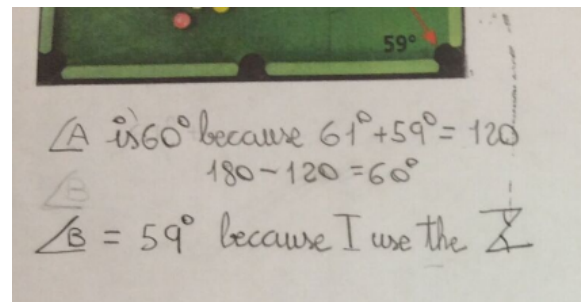 59°
∠A is 60° because 61° + 59° = 120
180 - 120 = 60°
∠B
∠B = 59° because I use the Z